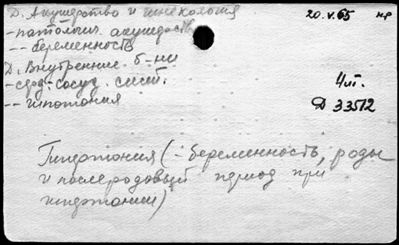 Д. Акушерство и гинекология
20.V.65 нр
-патолог. акушерство
-- беременность
Д. Внутренние б-ни
-серд-сосуд. сист.
-- гипотония
Чит.
Д 33512
Гипотония (- беременность, роды
и послеродовый период при
гипотонии)